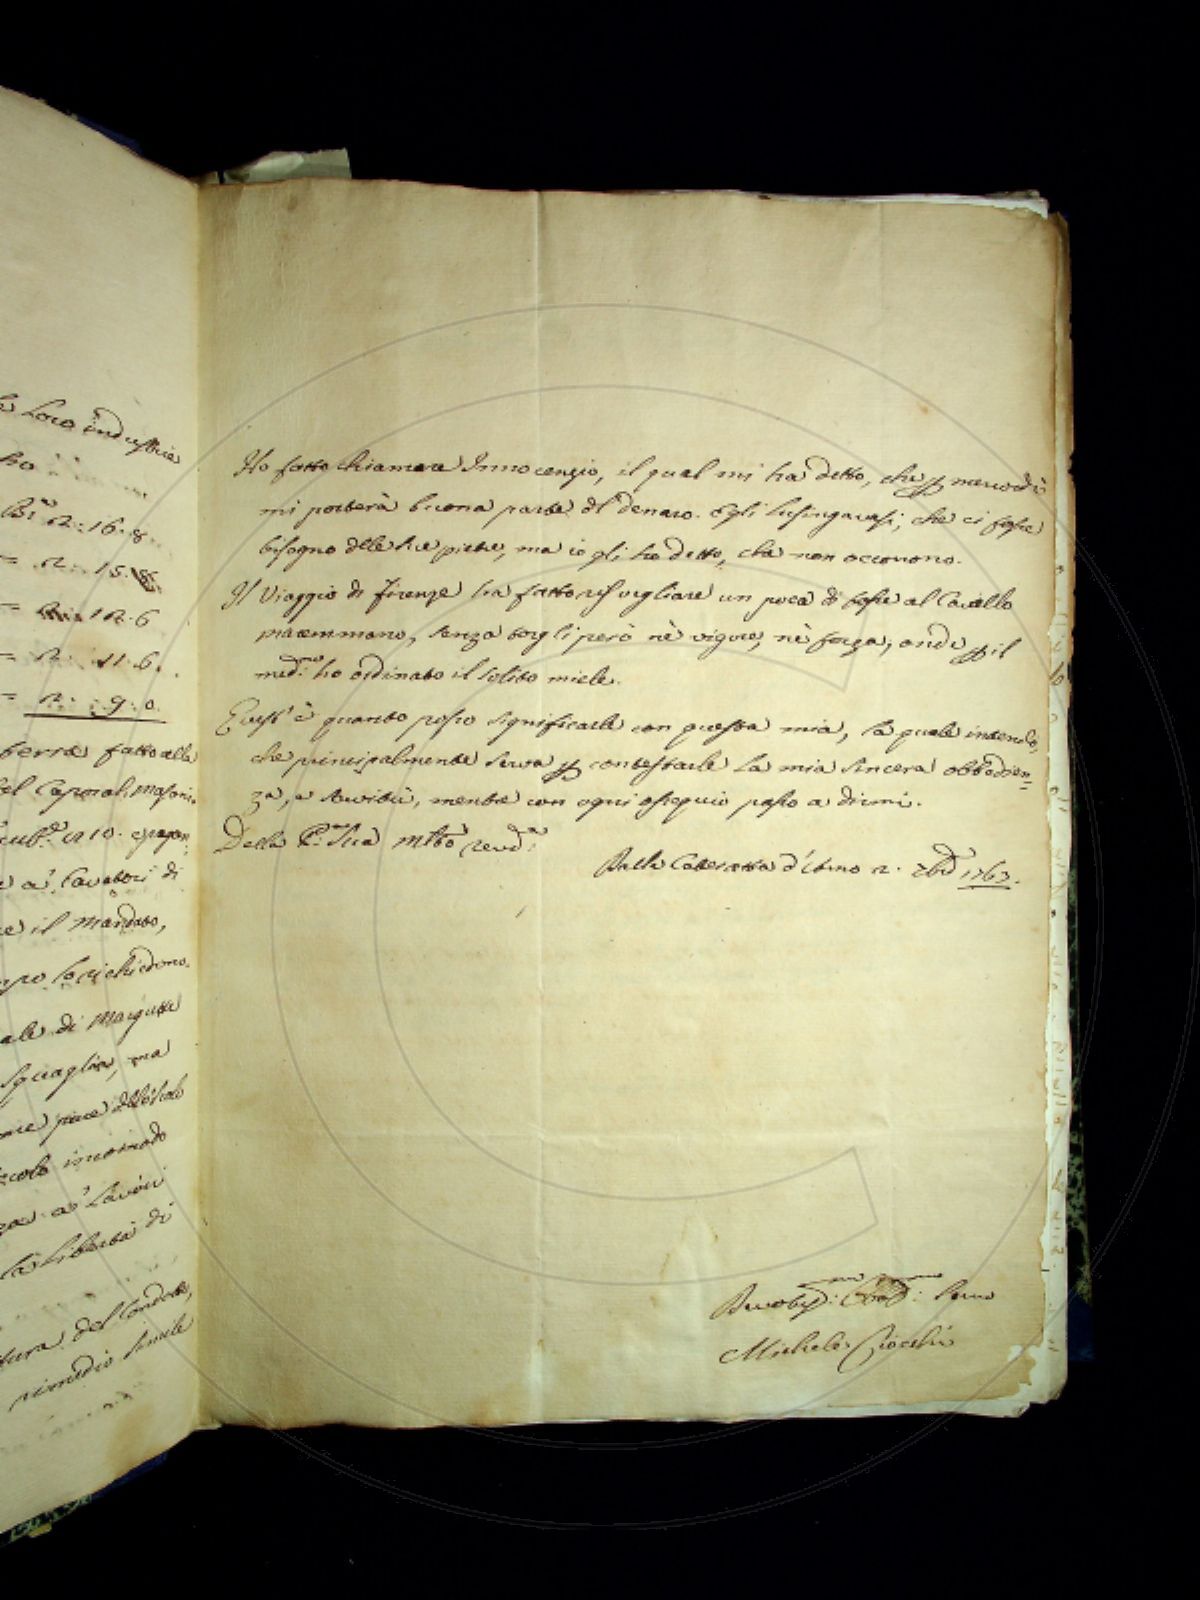 le Loro industrie
ho
Br.i n.: 16. 8.
= n.: 15.
= 12. 6
= n. 11. 6.
= n. 9. 0.
terra fatto alla
del Caporal Masoni.
n 10.
e a' Cavatori di
re il Mandato,
mpo lo richiedono.
ale di Margutte
squaglia, ma
me pure dello Scolo
iccolo incomodo
a' Lavori
la libertà di
tura del Condotto,
rimedio simile
Ho fatto chiamare Innocenzio, il qual mi ha detto, che p mercoledì
mi porterà buona parte dl denaro. Egli lusingavasi, che ci fosse
bisogno dlle sue pietre, ma io gli ho detto, che non occorrono.
Il Viaggio di Firenze ha fatto risvegliare un poca di tosse al Cavallo
maremmano, senza torgli però nè vigore, nè forza; onde p il
med.mo ho ordinato il solito miele.
Quest' è quanto posso significarle con questa mia, la quale intendo,
che principalmente serva p contestarle la mia sincera obbedien=
za, e servitù, mentre con ogni ossequio passo a dirmi.
Della P. Sua Mto Revd.a
Dalla Cateratta d'Arno 2. 7bre 1767.
Devotis.mo Obb.mo Servo
Michele Ciocchi